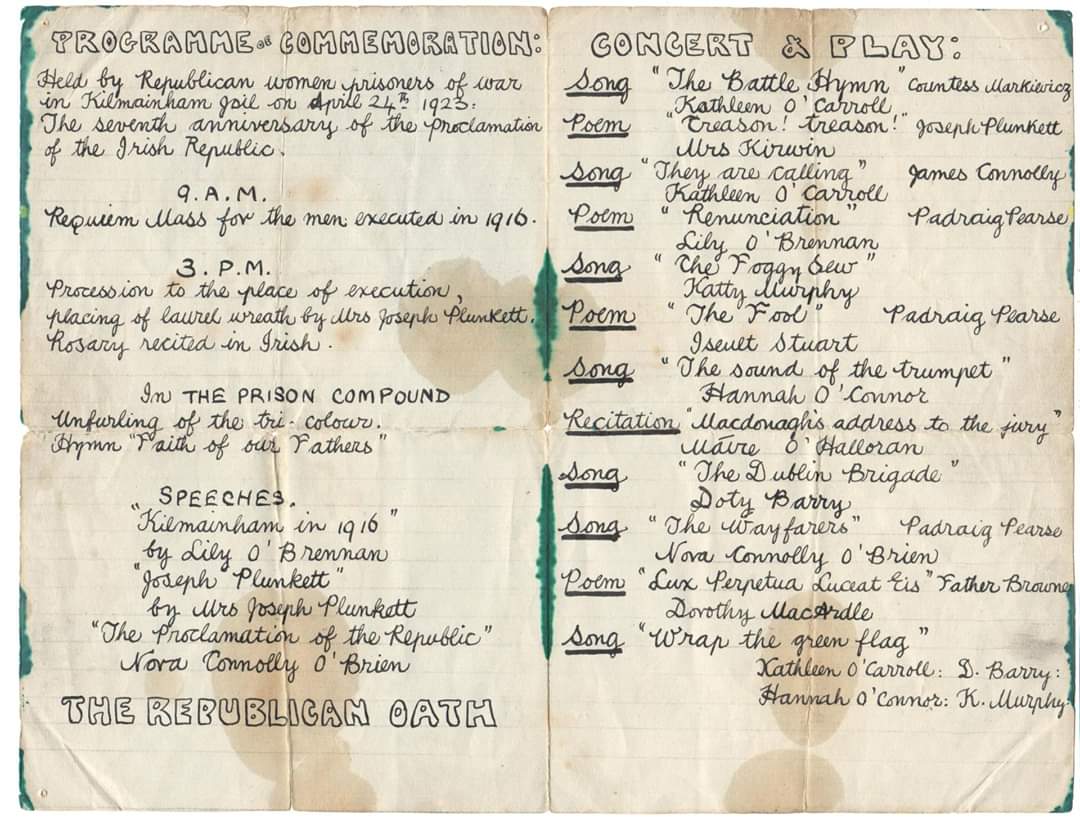 PROGRAMME OF COMMEMORATION:
Held by Republican women prisoners of war
in Kilmainham Jail on April 24th 1923:
The seventh anniversary of the proclamation
of the Irish Republic.
9. A.M.
Requiem Mass for the men executed in 1916.
3. P.M.
Procession to the place of execution,
placing of laurel wreath by Mrs Joseph Plunkett.
Rosary recited in Irish.
In THE PRISON COMPOUND
Unfurling of the tri-colour.
Hymn "Faith of our Fathers"
SPEECHES.
"Kilmainham in 1916"
by Lily O'Brennan
"Joseph Plunkett"
by Mrs Joseph Plunkett
"The Proclamation of the Republic"
Nora Connolly O'Brien
THE REPUBLICAN OATH
CONCERT & PLAY:
Song "The Battle Hymn" Countess Markiewicz
Kathleen O'Carroll
Poem "Treason! Treason!" Joseph Plunkett
Mrs Kirwin
Song "They are calling" James Connolly
Kathleen O'Carroll
Poem "Renunciation" Padraig Pearse
Lily O'Brennan
Song "The Foggy Dew"
Katty Murphy
Poem "The Fool" Padraig Pearse
Iseuet Stuart
Song "The sound of the trumpet"
Hannah O'Connor
Recitation "Macdonagh's address to the jury"
Máire O'Halloran
Song "The Dublin Brigade"
Doty Barry
Song "The Wayfarers" Padraig Pearse
Nora Connolly O'Brien
Poem "Lux Perpetua Luceat Eis" Father Browne
Dorothy MacArdle
Song "Wrap the green flag"
Kathleen O'Carroll: D. Barry:
Hannah O'Connor: K. Murphy: